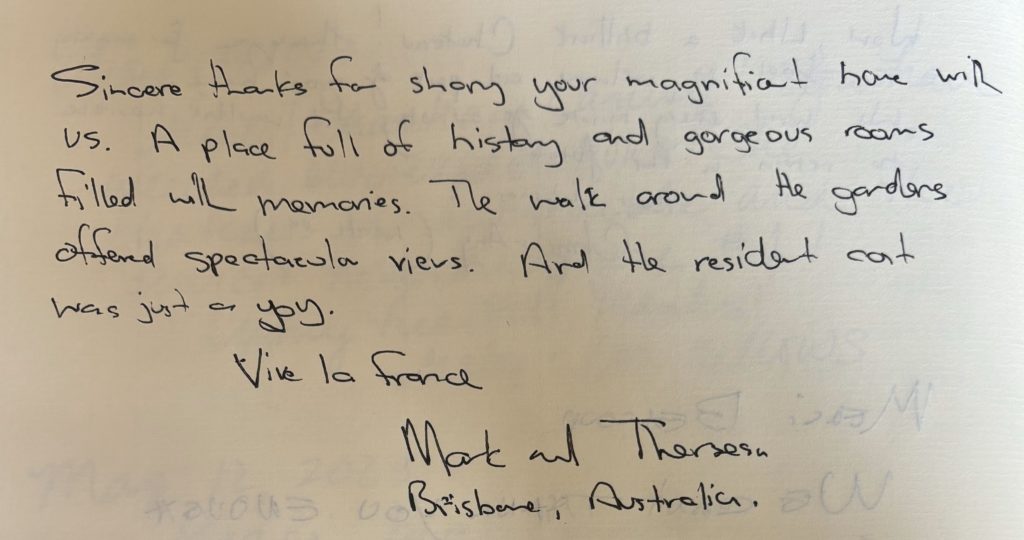 Sincere thanks for sharing your magnificent home with
us. A place full of history and gorgeous rooms
filled with memories. The walk around the gardens
offered spectacular views. And the resident cat
was just a joy.
Vive la France
Mark and Theresa
Brisbane, Australia.